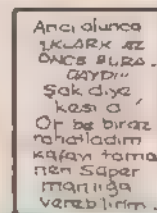 olunca
KLARK AZ
ÖNCE BURA.
DAYDI"
Şak diye
Of be biraz
rahatladım
kafam tama
men Süper
manlığa
verebilirim.